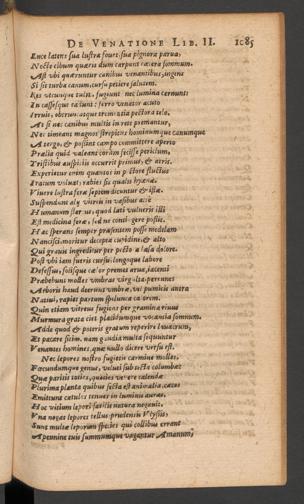 DE VENATIONE LIB. II. 1085
Ence latens sua lustra fouet, sua pignora parua,
Nocte cibum quærit dum carpunt cætera somnum.
Ast vbi quæruntur canibus venantibus, ingens
Si sit turba canum, cursu petiere salutem.
Res vtcunque tulit, fugiunt nec lumina cernunt:
In cassesque ruunt: ferro venator acuto
Irruit, obtrun
At si nec canibus multis in rete premantur,
Nec timeant magnos strepitus hominumque canumque
A tergo, & possint campo committere aperto
Prælia quid valeant
Tristibus auspiciis occurrit primus, & atris.
Experietur enim quantos in pectore fluctus
Iratum voluat, rabies sic
Viuere lustra feræ septem dicuntur & istæ.
Suspendunt aly viscus in vasibus
Humanum
Est medicina feræ, sed ne contingere possit.
Hac sperans semper præsentem posse medelam
Nancisci, moritur decepta cupidine, & alto
Qui grauis ingreditur per pectora læsa dolore.
Post vbi iam fueris cursu, longoque labore
Defessus, solisque calor premet arua, iacenti
Præbebunt molles vmbras virgulta perennes
Arboris haud deerunt vmbræ, vel pumicis antra
Natiui, rapiet partum spelunca calorem.
Quin etiam vitreus fugiens per gramina riuus
Murmura grata ciet placidumque vicania somnum.
Adde quod & poteris gratum reperire lauacrum,
Et pacare sitim. nam gaudia multa sequuntur
Venantes homines, quæ nullo dicere versu est.
Nec lepores nostro fugietis carmine molles,
Fœcundumque genus, veluti sub tecta columbæ
Quæ pariter toties, quoties vertere calendæ
Plurima planta quibus secta est animalia, cæcos
Emittunt catulos tenues in luminis auras.
Hoc vitium lepori sauitis natura negauit.
Vna negas lepores tellus prudentis Vlyssis;
Sunt multæ leporum species qui collibus errant
Apennine tuis summumque vagantur Amanum;